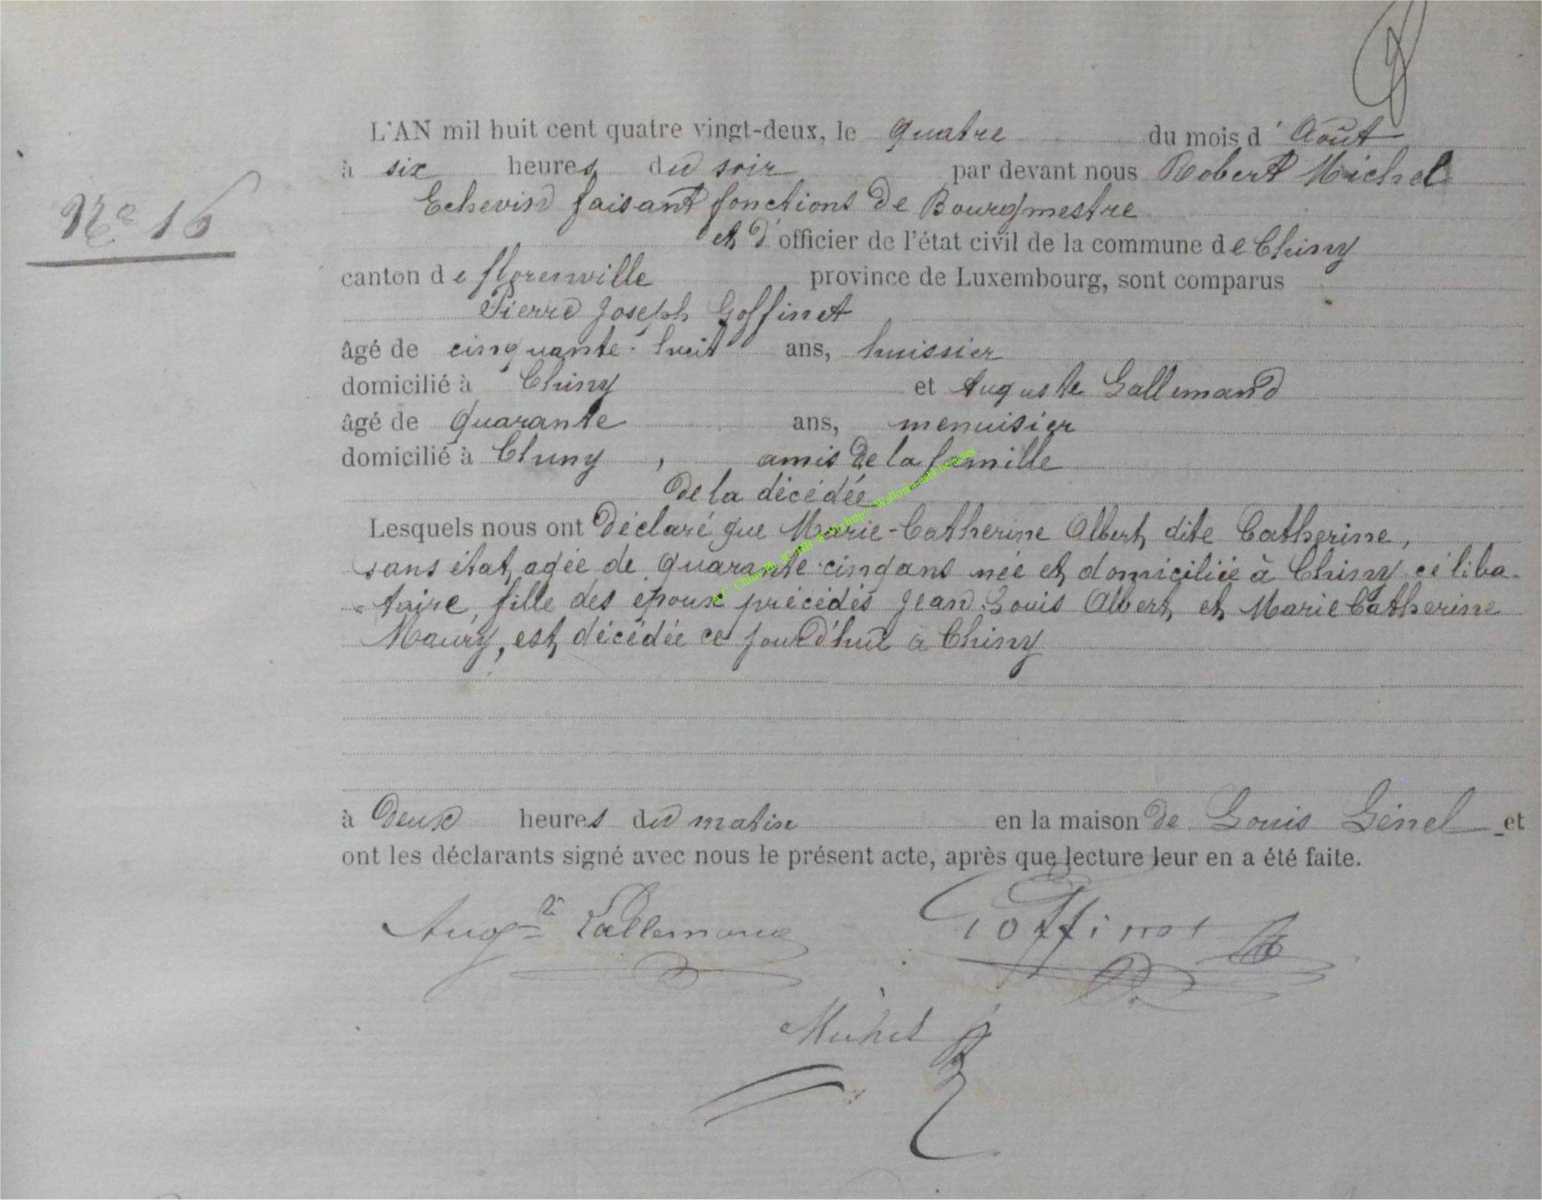 L'AN mil huit cent quatre vingt-deux, le quatre du mois d'Août
à six heures du soir par devant nous Robert Michel
Nº 16
Echevin faisant fonctions de Bourgmestre
et d'officier de l'état civil de la commune de Chiny
canton de florenville province de Luxembourg, sont comparus
Pierre Joseph Goffinet
âgé de cinquante-huit ans, huissier
domicilié à Chiny et Auguste Lallemand
âgé de Quarante ans, menuisier
domicilié à Chiny, amis de la famille
de la décédée
Lesquels nous ont déclaré que Marie-Catherine Albert, dite Catherine,
sans état, agée de quarante-cinq ans née et domiciliée à Chiny, céliba-
-taire, fille des époux précédés Jean Louis Albert, et Marie Catherine
Maury, est décédée ce jourd'hui à Chiny
à Deux heures du matin en la maison de Louis Génel et
ont les déclarants signé avec nous le présent acte, après que lecture leur en a été faite.
Augte Lallemand Goffinet
Michel R